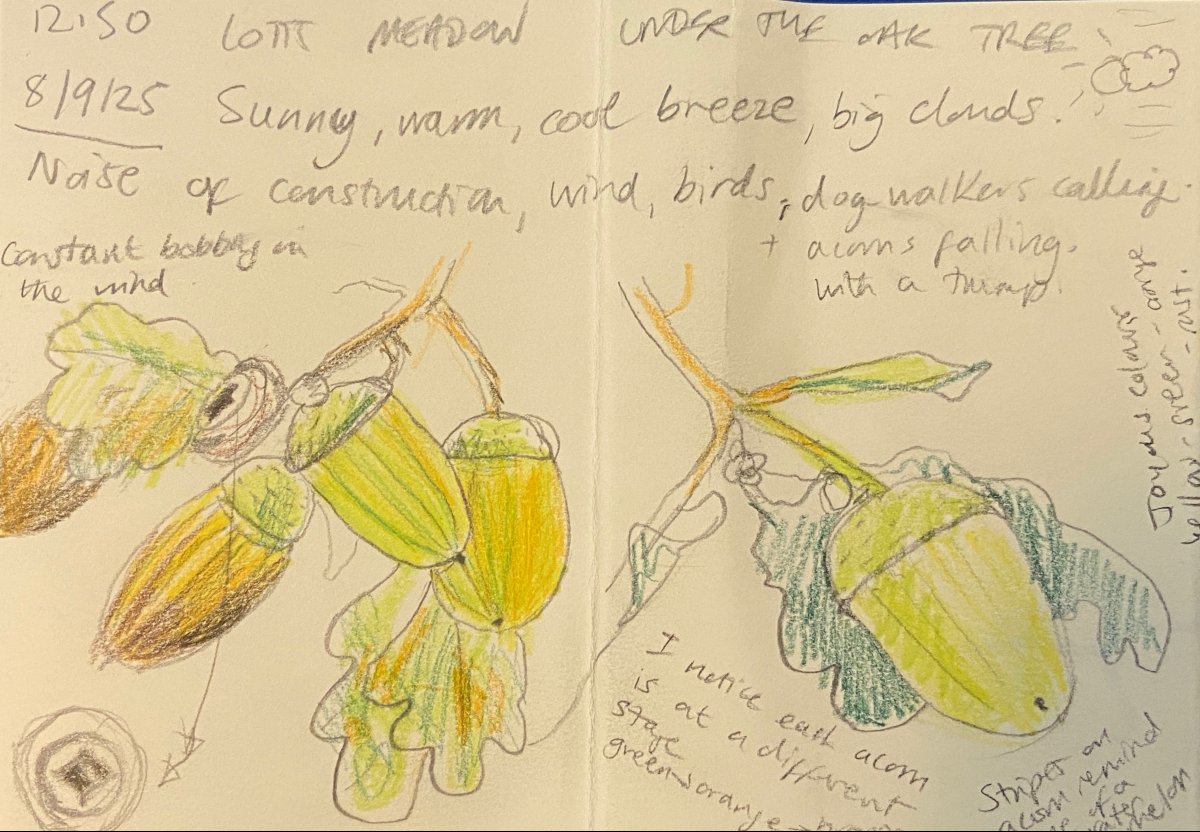 12:50 LOTTS MEADOW UNDER THE OAK TREE
8/9/25 Sunny, warm, cool breeze, big clouds.
Noise of construction, wind, birds, dog walkers calling.
+ acorns falling.
with a thump.
Constant bobbing in
the wind
Joyous colours
yellow - green - orange
- rust.
I notice each acorn
is at a different
stage
green → orange → brown
Stripes on
acorn remind
me of a
watermelon